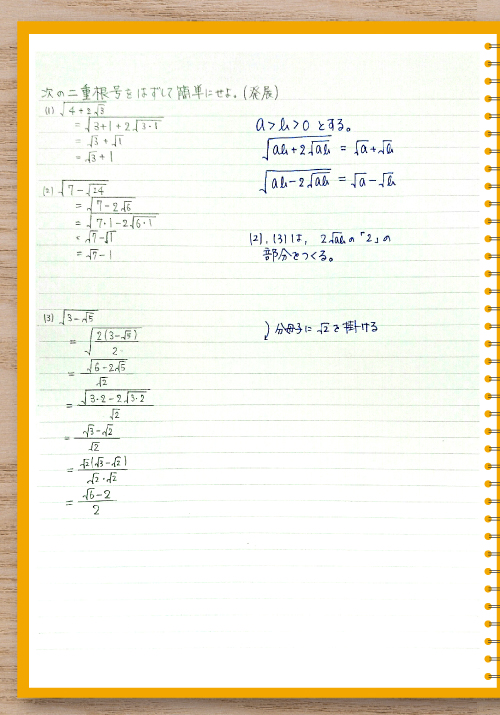 次の二重根号をはずして簡単にせよ。(発展)
(1) √(4+2√3)
= √(3+1+2√(3・1))
= √3+√1
= √3+1
a>b>0 とする。
√(ab+2√(ab)) = √a+√b
√(ab-2√(ab)) = √a-√b
(2) √(7-√24)
= √(7-2√6)
= √(7・1-2√(6・1))
= √7-√1
= √7-1
(2), (3)は, 2√(ab)の「2」の
部分をつくる。
(3) √(3-√5)
= √(2(3-√5)/2)
= √(6-2√5)/√2
= √(3・2-2√(3・2))/√2
= (√3-√2)/√2
= √2(√3-√2)/(√2・√2)
= (√6-2)/2
) 分母子に √2を掛ける